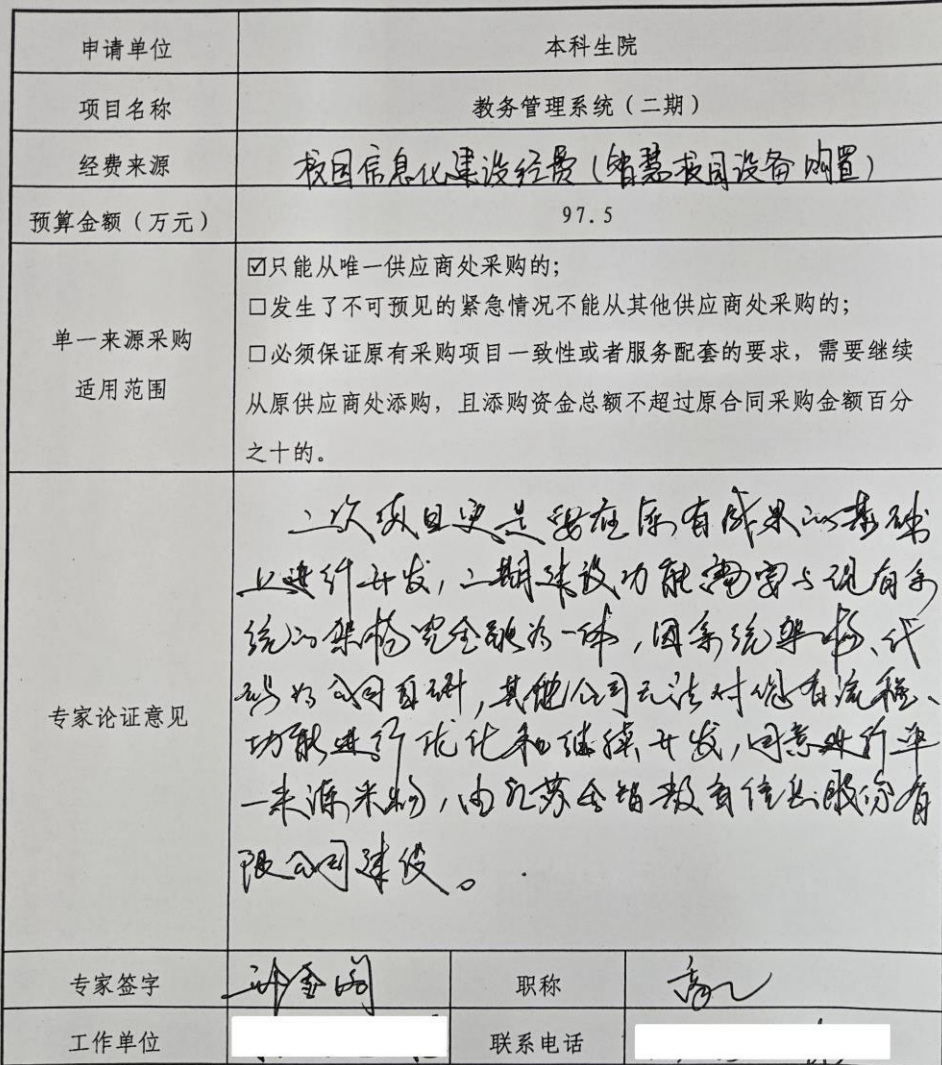 申请单位 本科生院
项目名称 教务管理系统（二期）
经费来源 校园信息化建设经费（智慧校园设备购置）
预算金额（万元） 97.5
单一来源采购
适用范围
☑只能从唯一供应商处采购的；
□发生了不可预见的紧急情况不能从其他供应商处采购的；
□必须保证原有采购项目一致性或者服务配套的要求，需要继续
从原供应商处添购，且添购资金总额不超过原合同采购金额百分
之十的。
专家论证意见
二次项目更是要在原有成果的基础
上进行开发，二期建设功能需要与现有系
统的架构完全融为一体，因系统架构、代
码为公司自研，其他公司无法对现有流程、
功能进行优化和继续开发，同意进行单
一来源采购，由江苏金智教育信息股份有
限公司建设。
专家签字 职称 高工
工作单位 联系电话